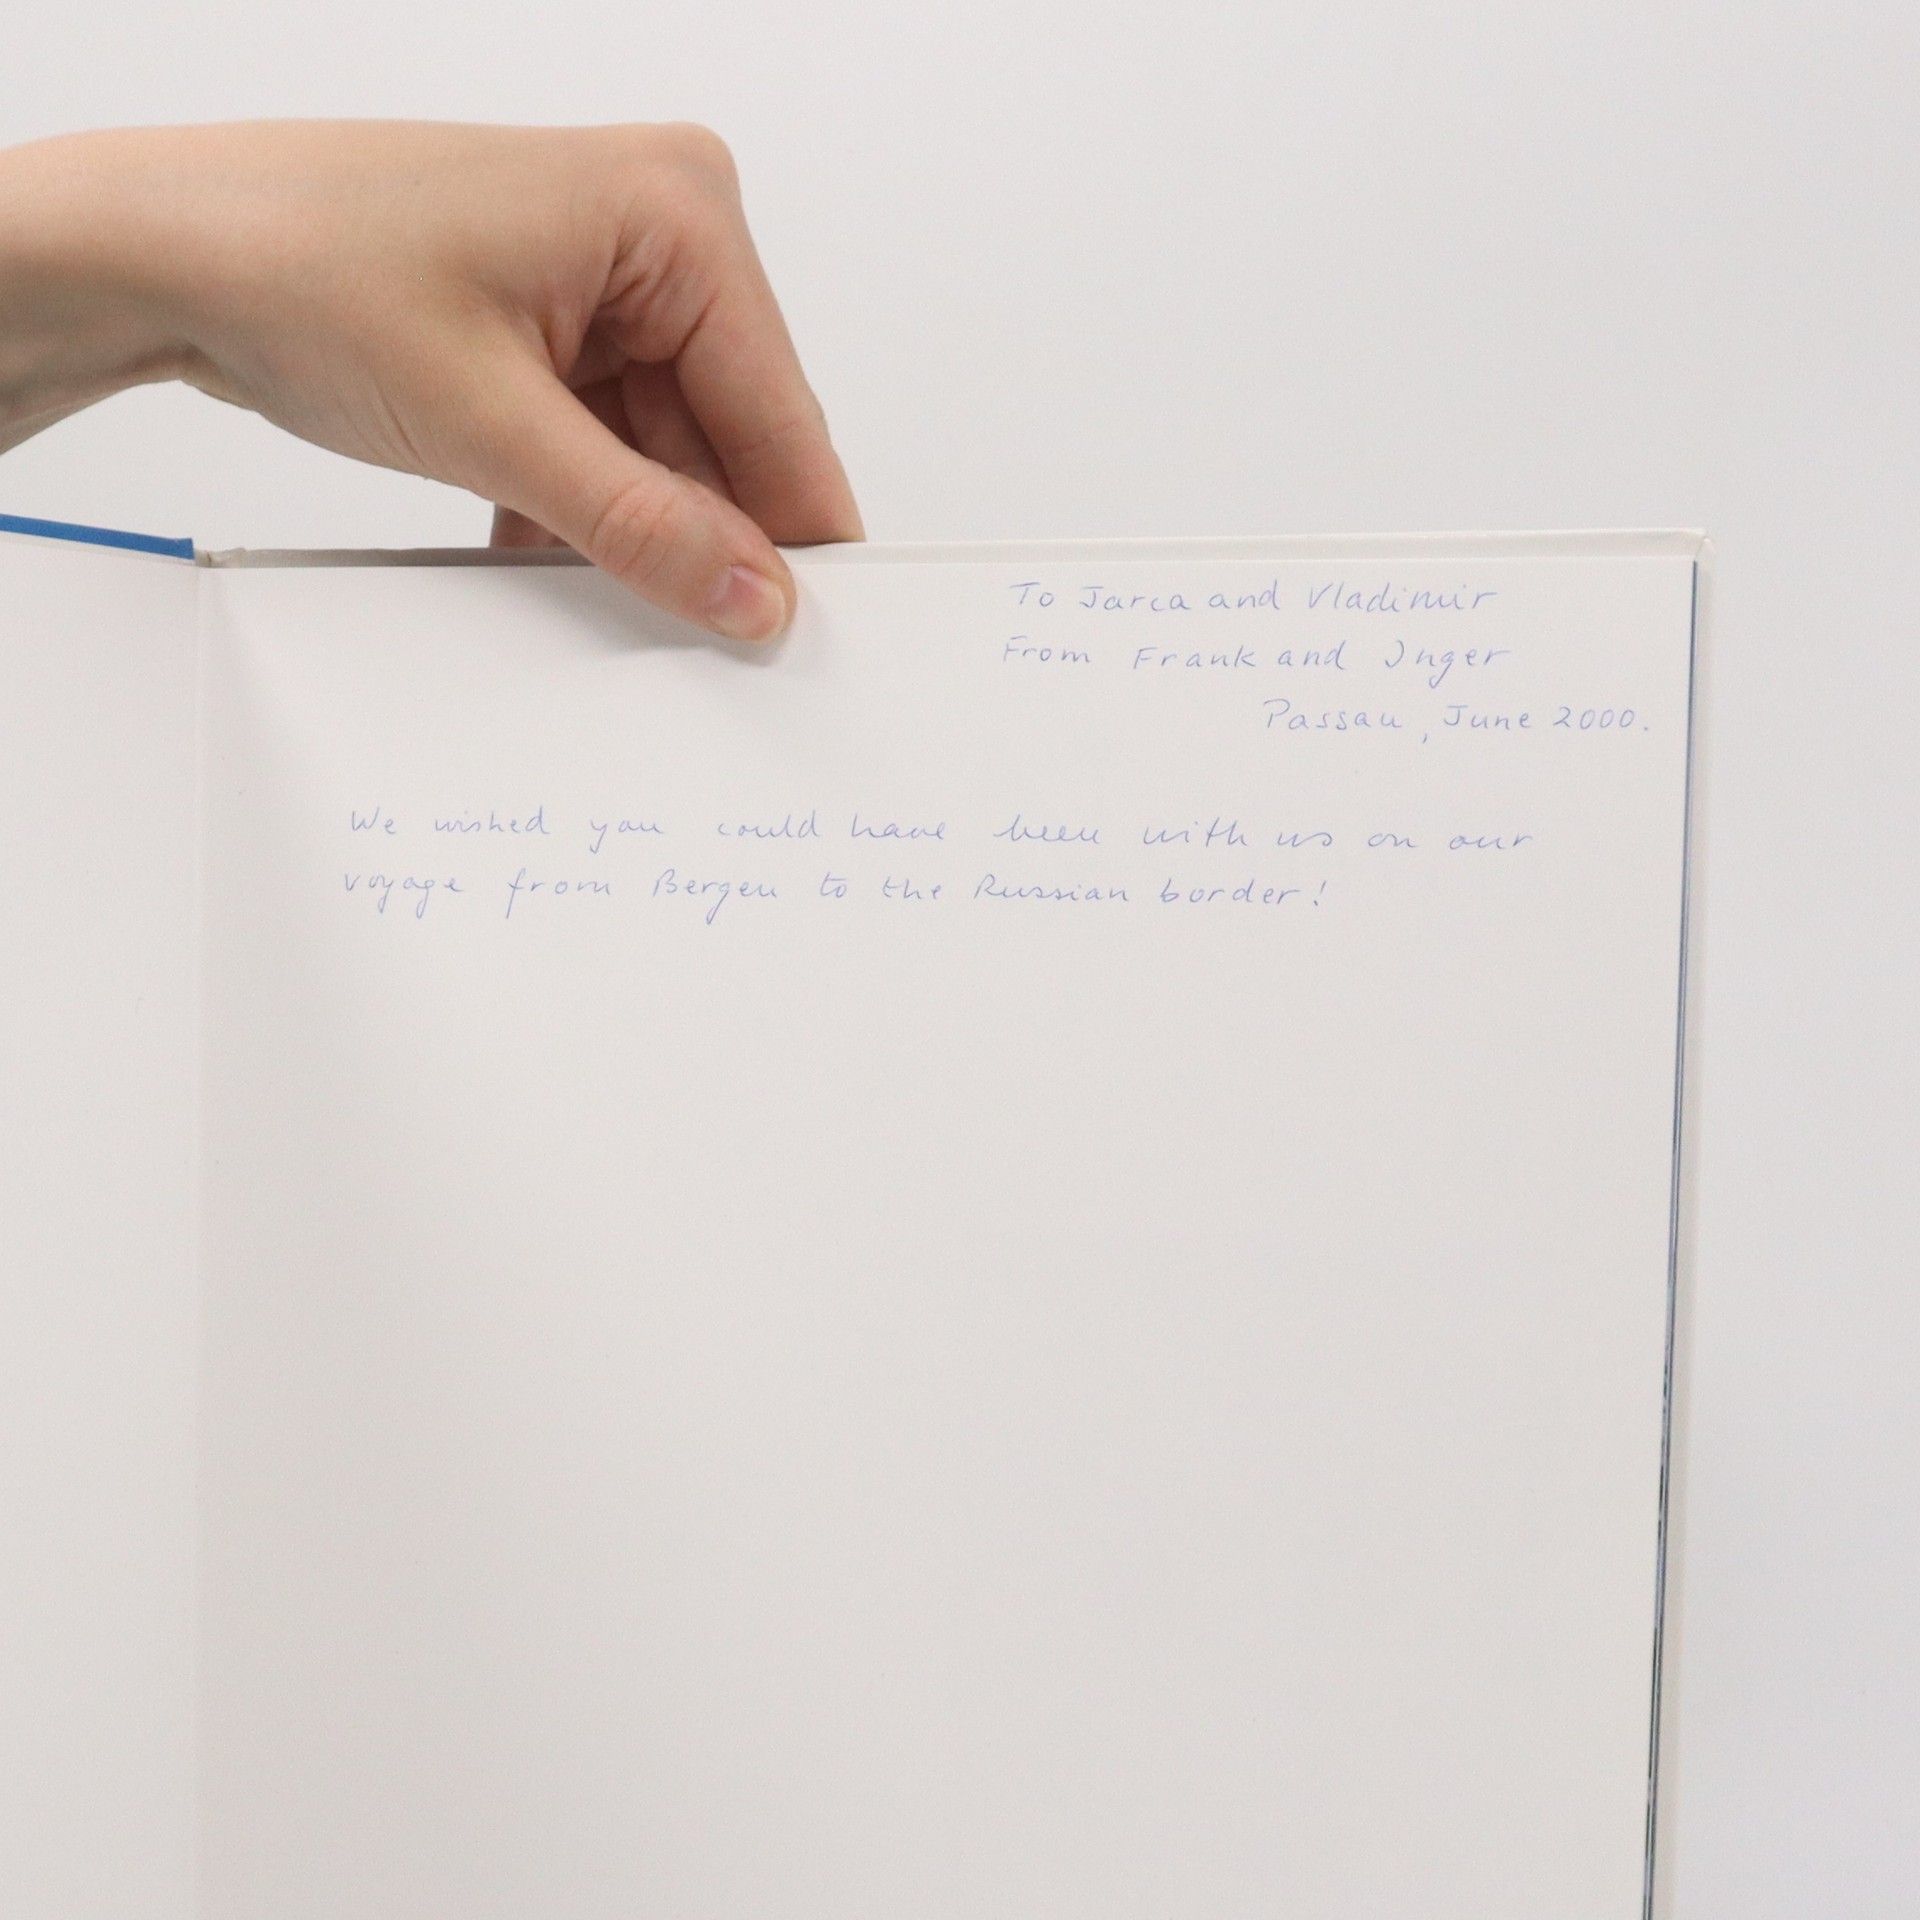 To Jarca and Vladimir
From Frank and Inger
Passau, June 2000.
We wished you could have been with us on our
voyage from Bergen to the Russian border!